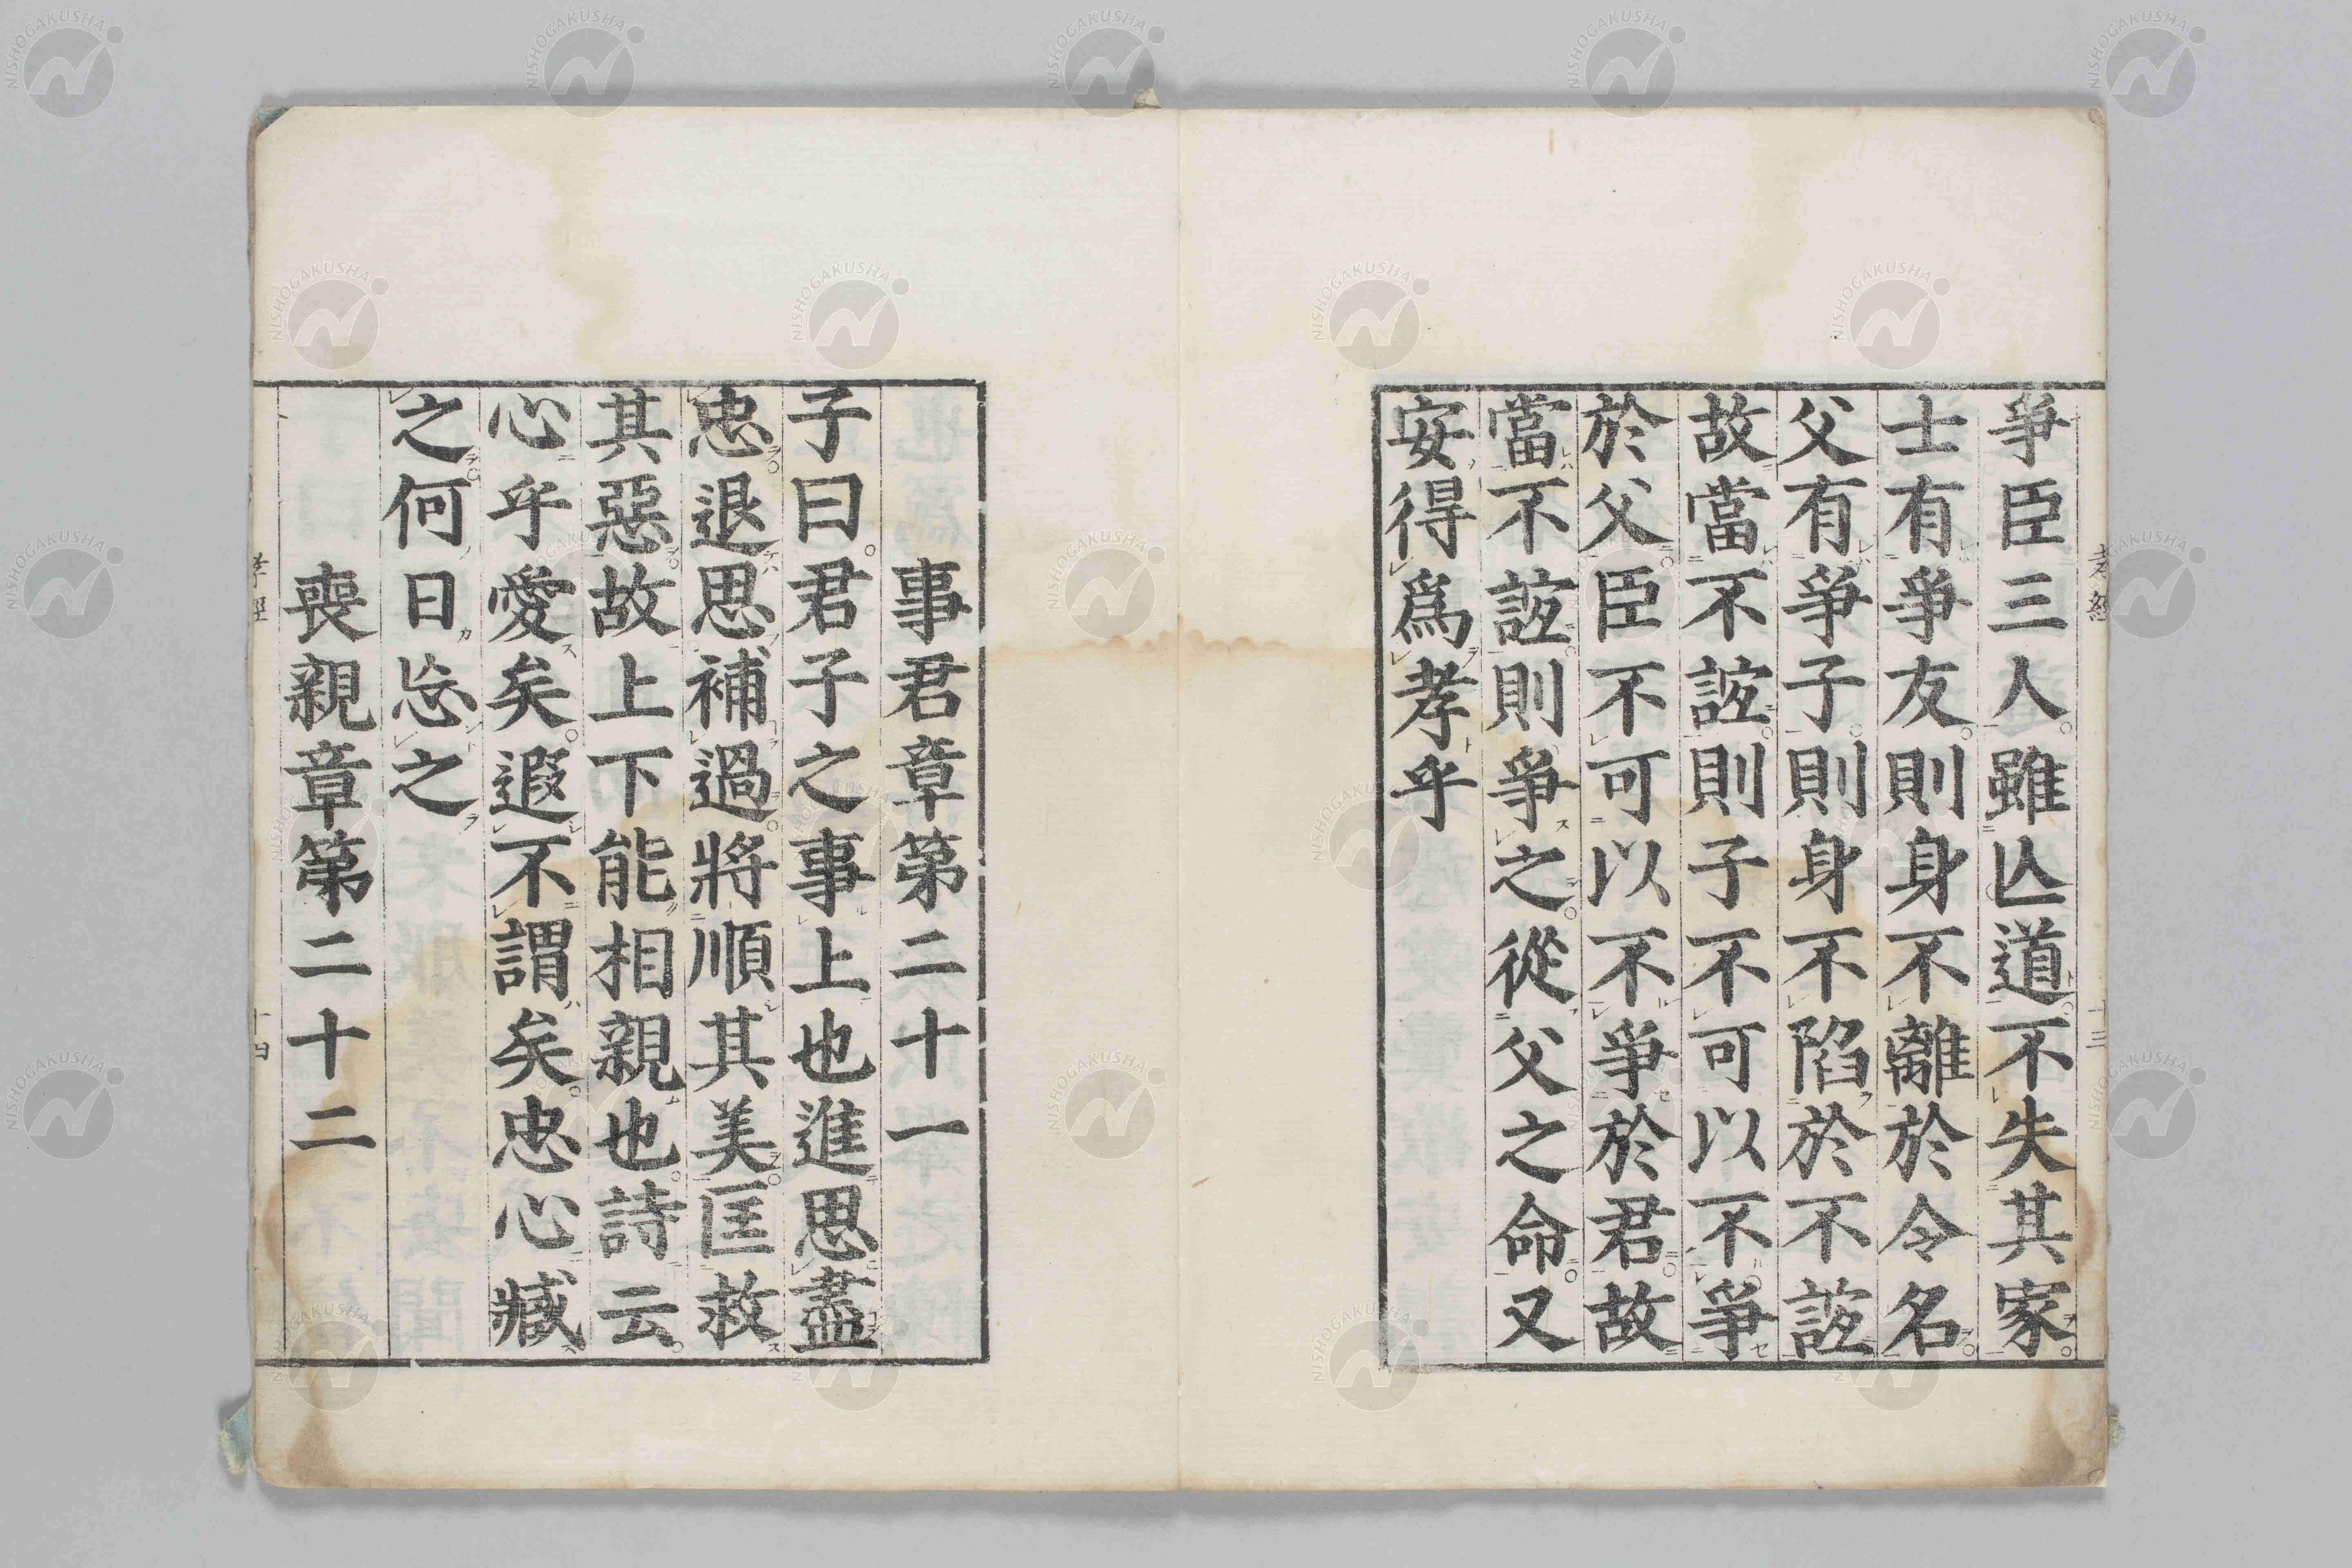 爭臣三人雖亾道不失其家
士有爭友則身不離於令名
父有爭子則身不陷於不誼
故當不誼則子不可以不爭
於父臣不可以不爭於君故
當不誼則爭之從父之命又
安得爲孝乎
事君章第二十一
子曰君子之事上也進思盡
忠退思補過將順其美匡救
其惡故上下能相親也詩云
心乎愛矣遐不謂矣忠心臧
之何日忘之
喪親章第二十二
孝經
十四
NISHOGAKUSHA